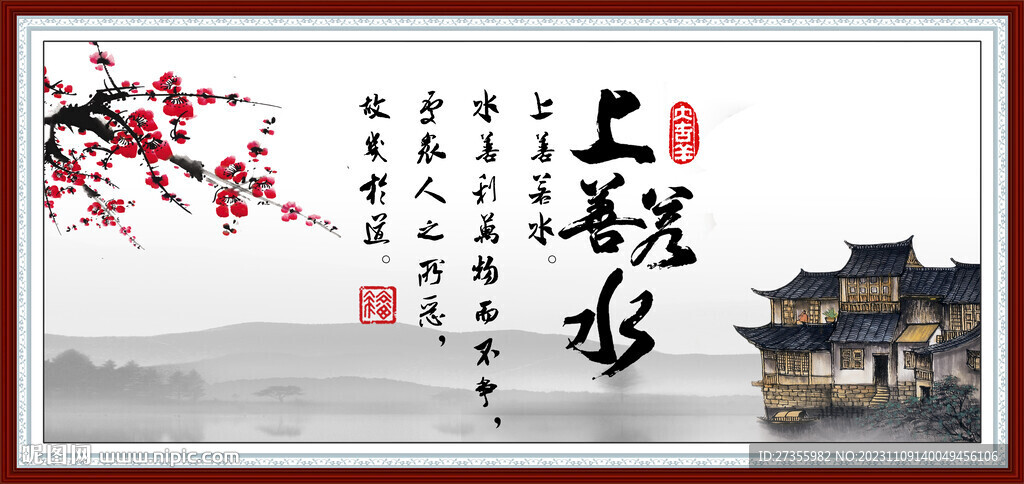 上善若水
上善若水。
水善利萬物而不争，
處衆人之所惡，
故幾於道。
昵图网 www.nipic.com
ID:27355982 NO:20231109140049456106